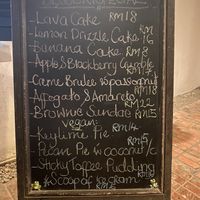 -Lava Cake RM18
-Lemon Drizzle Cake RM
16
-Banana Cake RM8
-Apple & Blackberry Crumble
RM17
-Creme Brulee w passion
RM18
-Affogato & Amaretto
RM22
-Brownie Sundae RM15
vegan:
-Keylime Pie RM14
-Pecan Pie w coconut
RM15
-Sticky Toffee Pudding
& Scoop of ice cream